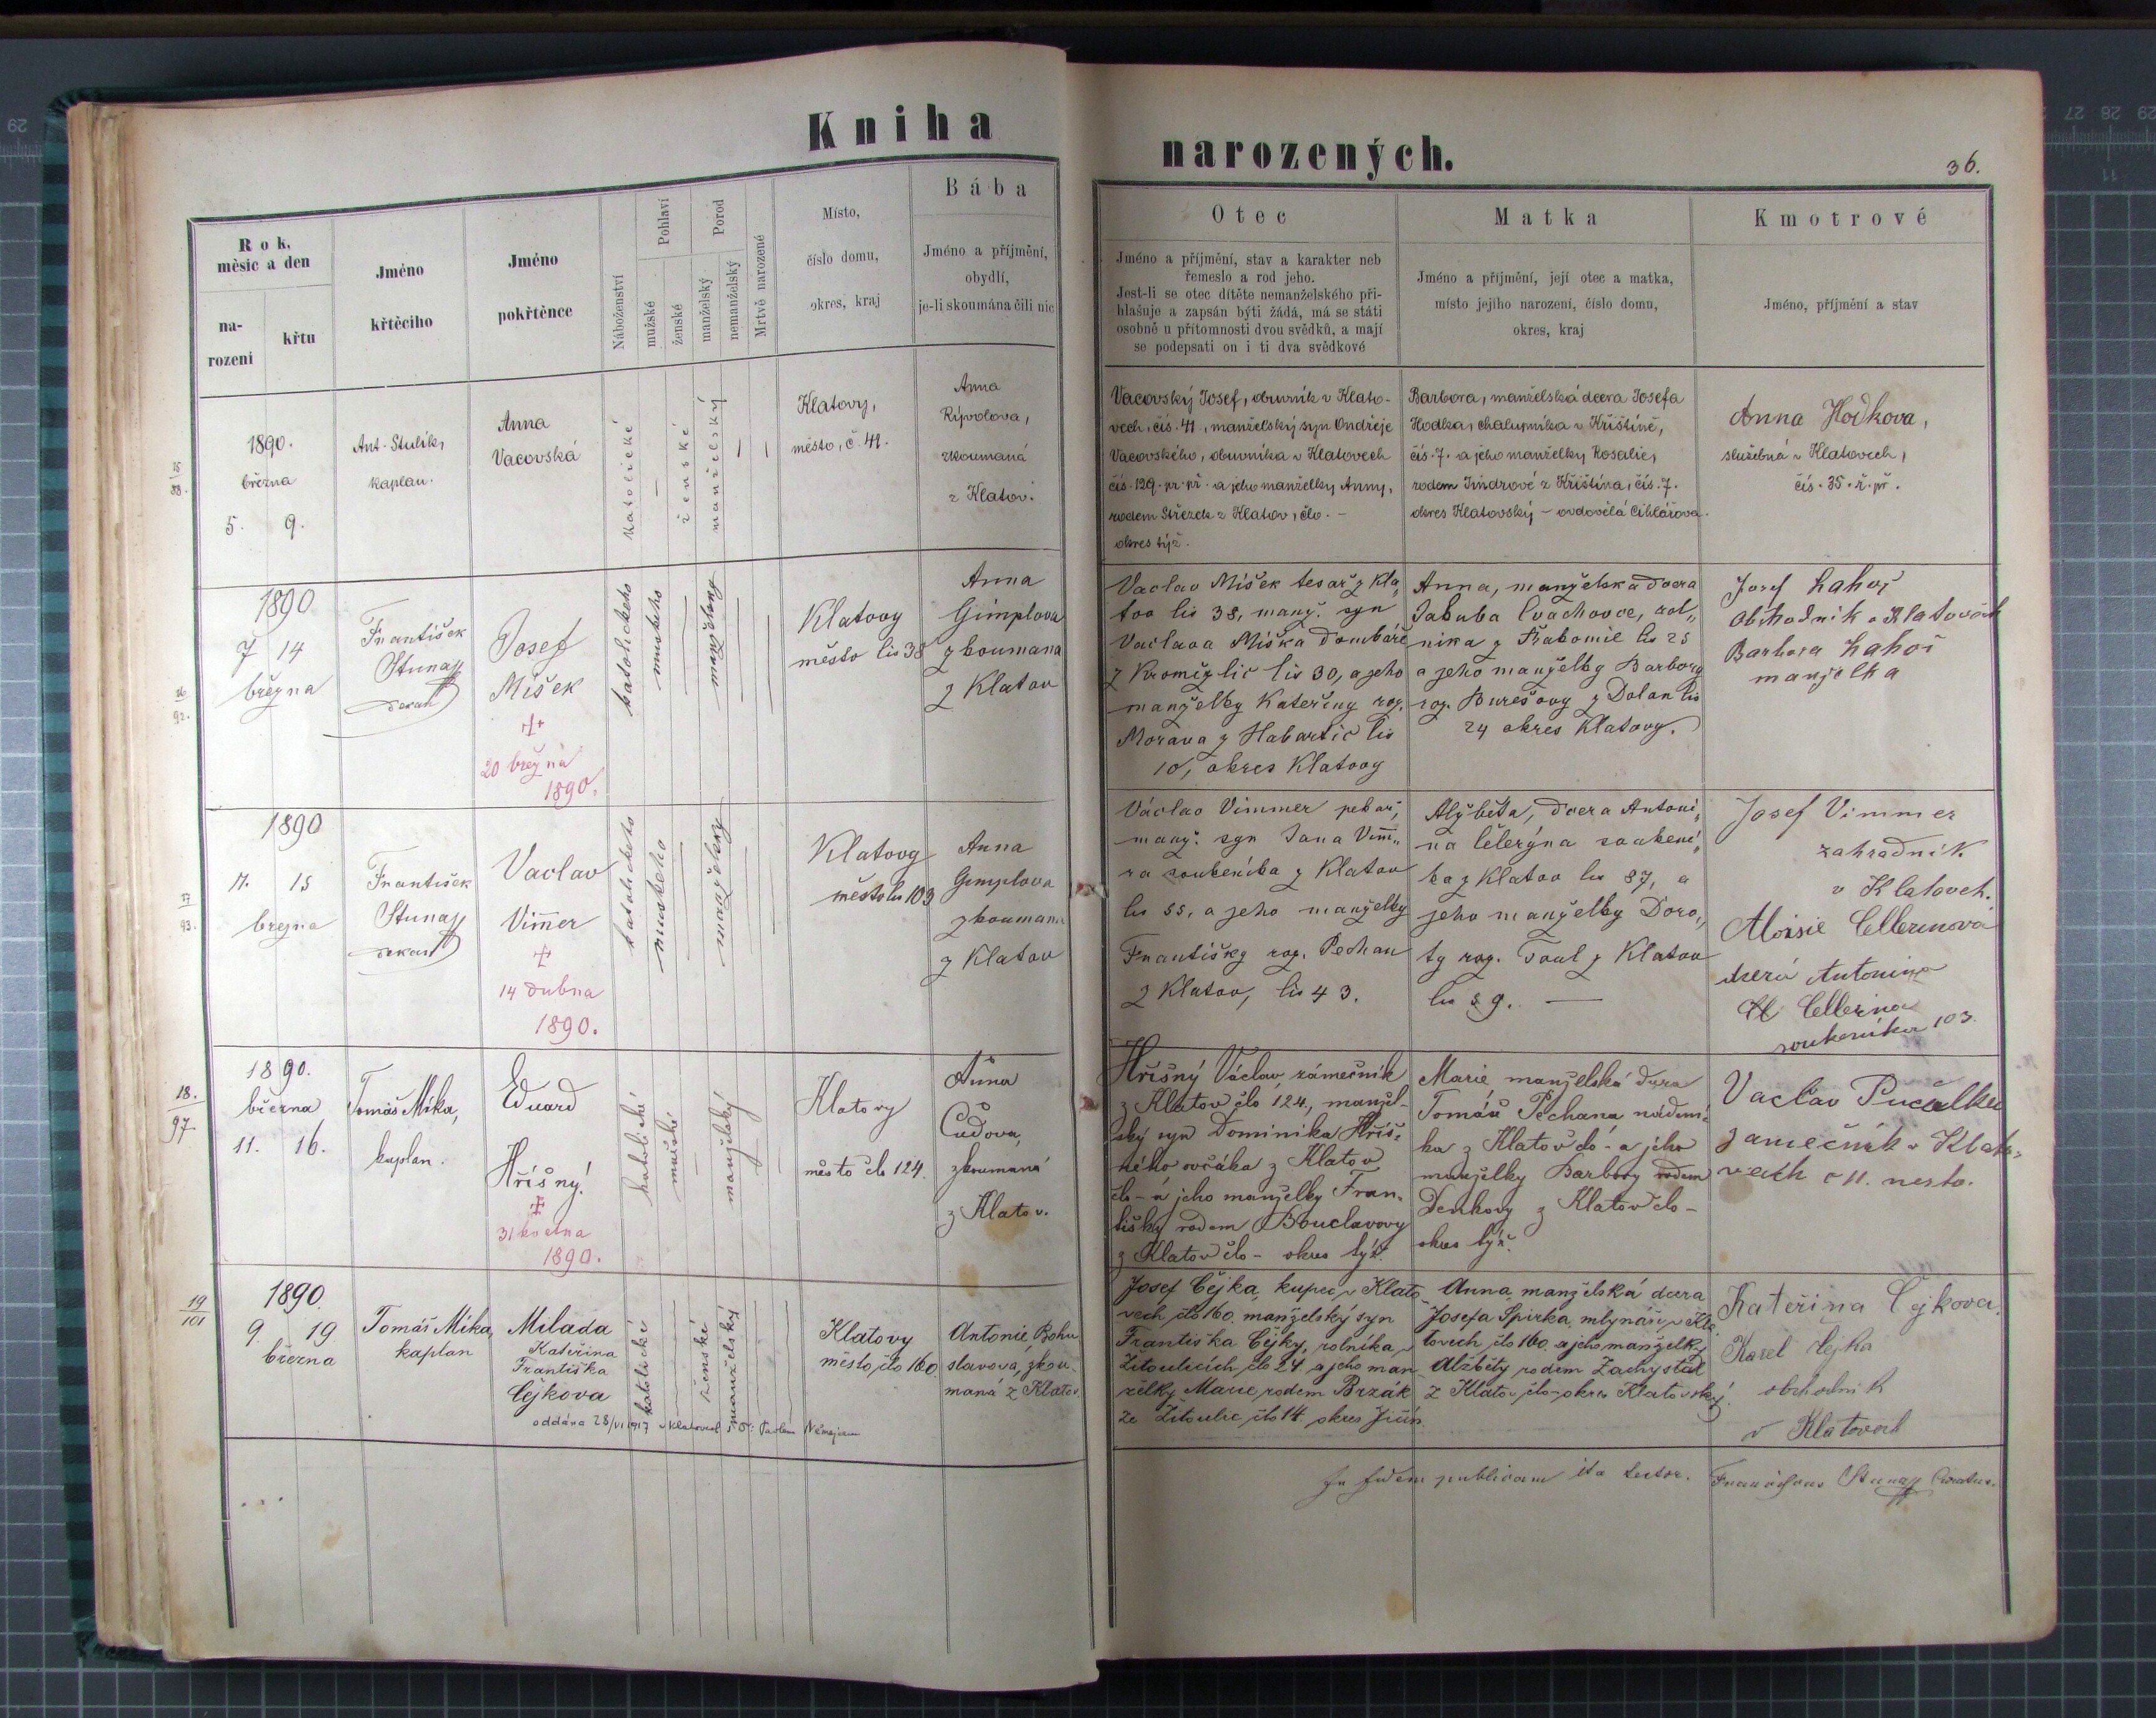 Kniha
narozených.
36.
Rok, měsíc a den
na-
rození
křtu
Jméno
křtěcího
Jméno
pokřtěnce
Náboženství
Pohlaví
mužské
ženské
Porod
manželský
nemanželský
Mrtvě narozené
Místo,
číslo domu,
okres, kraj
Bába
Jméno a příjmění,
obydlí,
je-li skoumána čili nic
Otec
Jméno a příjmění, stav a karakter neb
řemeslo a rod jeho.
Jest-li se otec dítěte nemanželského při-
hlašuje a zapsán býti žádá, má se státi
osobně u přítomnosti dvou svědků, a mají
se podepsati on i ti dva svědkové
Matka
Jméno a příjmění, její otec a matka,
místo jejího narození, číslo domu,
okres, kraj
Kmotrové
Jméno, příjmění a stav
15
88.
1890.
března
5. 9.
Ant. Stulík,
kaplan.
Anna
Vacovská
katolické
ženské
manželský
Klatovy,
město, č. 41.
Anna
Rývolova,
zkoumaná
z Klatov.
Vacovský Josef, obuvník v Klato-
vech, čís. 41, manželský syn Ondřeje
Vacovského, obuvníka v Klatovech
čís. 129. pr. př. a jeho manželky Anny,
rodem Střezek z Klatov, člo. -
okres týž.
Barbora, manželská dcera Josefa
Hodka, chalupníka v Křištíně,
čís. 7. a jeho manželky Rosalie,
rodem Jindrové z Křištína, čís. 7.
okres Klatovský - ovdovělá Cihlářova.
Anna Hodkova,
služebná v Klatovech,
čís. 35. ř. př.
16
92.
1890
7 14
března
František
Stunaff
děkan
Josef
Mišek
20 března
1890.
katolického
mužského
manželský
Klatovy
město čis 38
Anna
Gimplova
zkoumana
z Klatov
Vaclav Mišek tesař z Kla-
tov čis 38, manž. syn
Vaclava Miška domkáře
z Kromižlic čis 30, a jeho
manželky Kateřiny roz.
Morava z Habartic čis
10, okres Klatovy
Anna, manželska dcera
Jakuba Cvachovce, rol-
nika z čis 25
a jeho manželky Barbory
roz. Burešovy z Dolan čis
24 okres Klatovy.
Josef
Obchodnik v Klatovech
Barbora
manželka
17
93.
1890
11. 15
března
František
Stunaff
děkan
Vaclav
Vim̅er
14 dubna
1890.
katolického
mužského
manželský
Klatovy
město čis 103
Anna
Gimplova
zkoumana
z Klatov
Václav Vimmer pekař,
manž. syn Jana Vim̅e-
ra soukeníka z Klatov
čis 55, a jeho manželky
Františky roz. Pechan
z Klatov, čis 43.
Alžběta, dcera Antoni-
na Čelerýna soukení-
ka z Klatov čis 87, a
jeho manželky Doro-
ty roz. Toul z Klatov
Josef Vimmer
zahradník
v Klatovech.
Aloisie Cellerinova
dcera Antonina
Cellerina
soukeníka 103.
18.
97.
1890.
března
11. 16.
Tomáš Míka,
kaplan.
Eduard
Hříšný.
31 května
1890.
katolické
mužské
manželský
Klatovy
město člo 124.
Anna
Čudova,
zkoumaná
z Klatov.
Hříšný Václav, zámečník
z Klatov člo 124, manžel-
ský syn Dominika Hříš-
ného ovčáka z Klatov
člo - a jeho manželky Fran-
tišky rodem Bouclavovy
z Klatov člo - okres týž.
Marie manželská dcera
Tomáše Pechana nádení-
ka z Klatov člo - a jeho
manželky Barbory rodem
Denkovy z Klatov člo -
okres týž.
Vaclav Pucelka
zamečník v Klato-
vech č 11. město.
19
101
1890.
9. 19
března
Tomáš Míka,
kaplan
Milada
Kateřina
Františka
Čejkova
oddána 28/VI 1917 v Klatovech s Pavlem Němejcem
katolické
ženské
manželský
Klatovy
město, člo 160.
Antonie Bohu-
slavova, zkou-
maná z Klatov.
Josef Čejka, kupec v Klato-
vech člo 160. manželský syn
Františka Čejky, rolníka v
Žitoulicích člo 24 a jeho man-
želky Marie rodem Brzák
ze Žitoulic člo 14 okres Jičín.
Anna, manželská dcera
Josefa Spirka, mlynáře v Kla-
tovech člo 160. a jeho manželky
Alžběty rodem Zachystal
z Klatov člo - okres Klatovský.
Kateřina Čejkova.
Karel Čejka
obchodník
v Klatovech
In fidem publicam ita testor. Franciscus Stunaff Curatus.